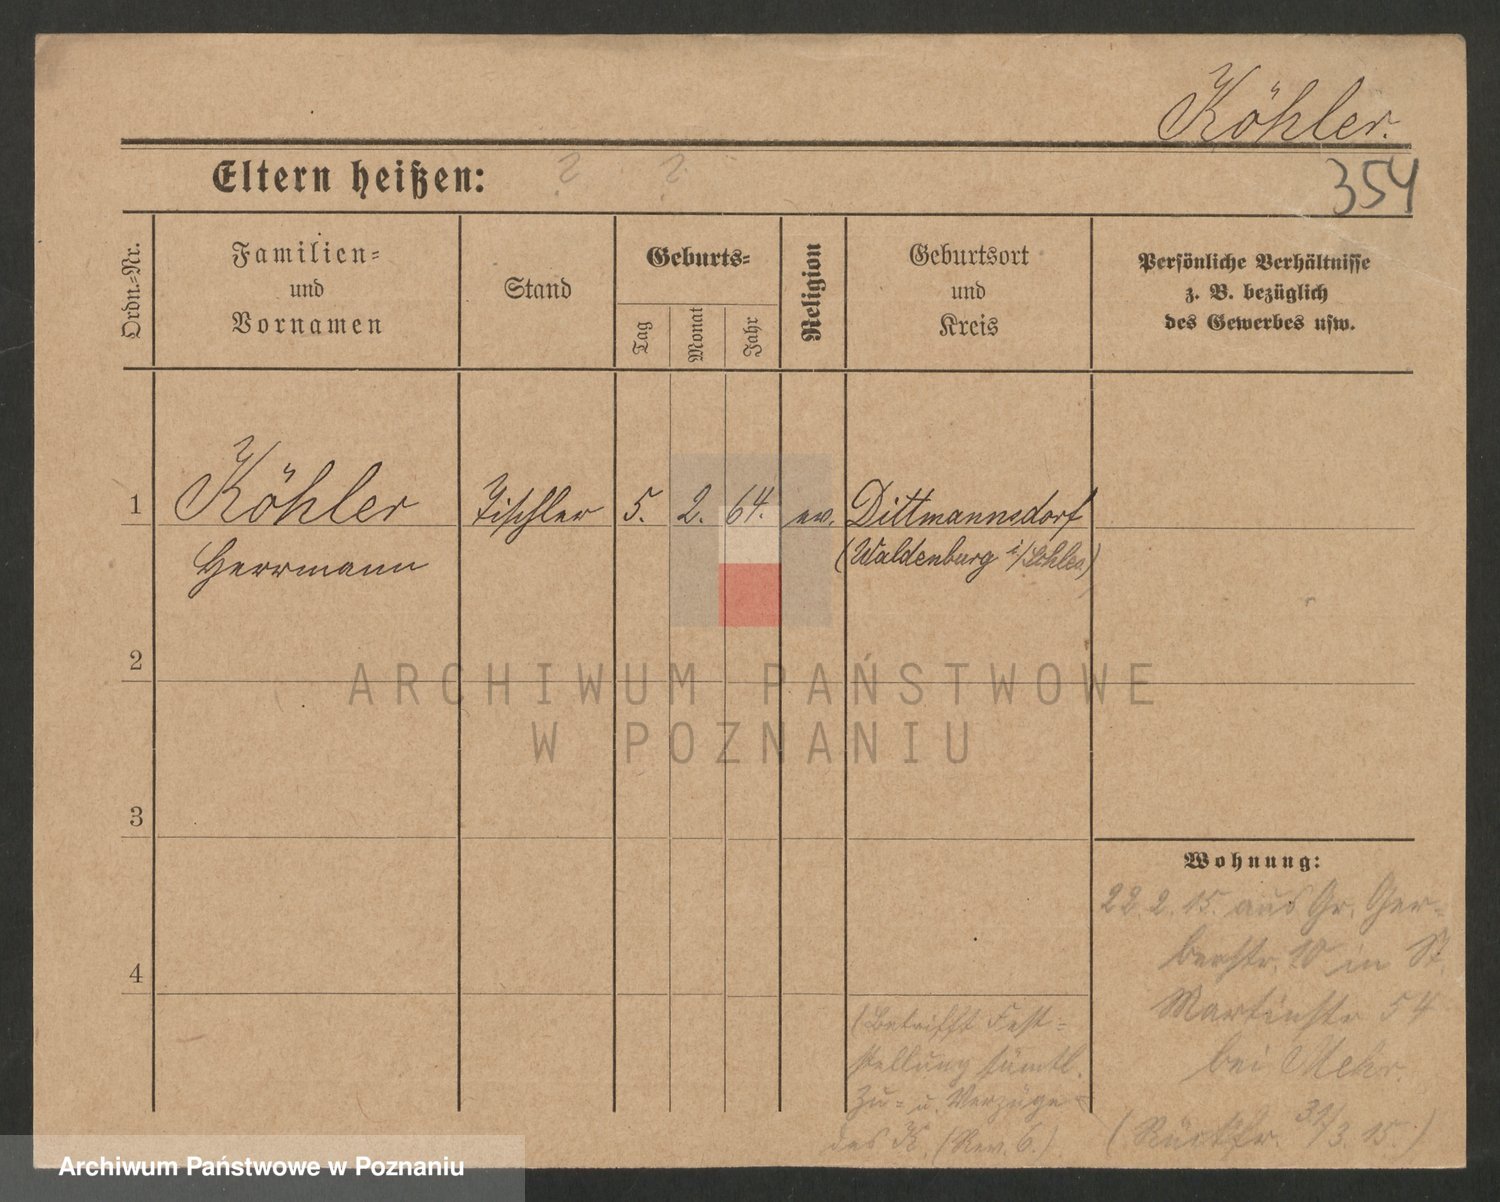 Köhler.
Eltern heißen: ? ?
354
Ordn.=Nr.
Familien=
und
Vornamen
Stand
Geburts=
Tag
Monat
Jahr
Religion
Geburtsort
und
Kreis
Persönliche Verhältnisse
z. B. bezüglich
des Gewerbes usw.
1
Köhler Tischler 5. 2. 64. ev. Dittmannsdorf
Herrmann (Waldenburg i/Schles.)
2
ARCHIWUM PAŃSTWOWE
W POZNANIU
3
Wohnung:
22. 2. 15. aus Gr. Ger-
berstr. 10 in St.
Martinstr. 54
bei
4
(Betrifft Fest=
stellung sämtl.
Zu= u. Verzüge
des K. (Rev. 6.)
(Rückfr. 31/3. 15.)
Archiwum Państwowe w Poznaniu